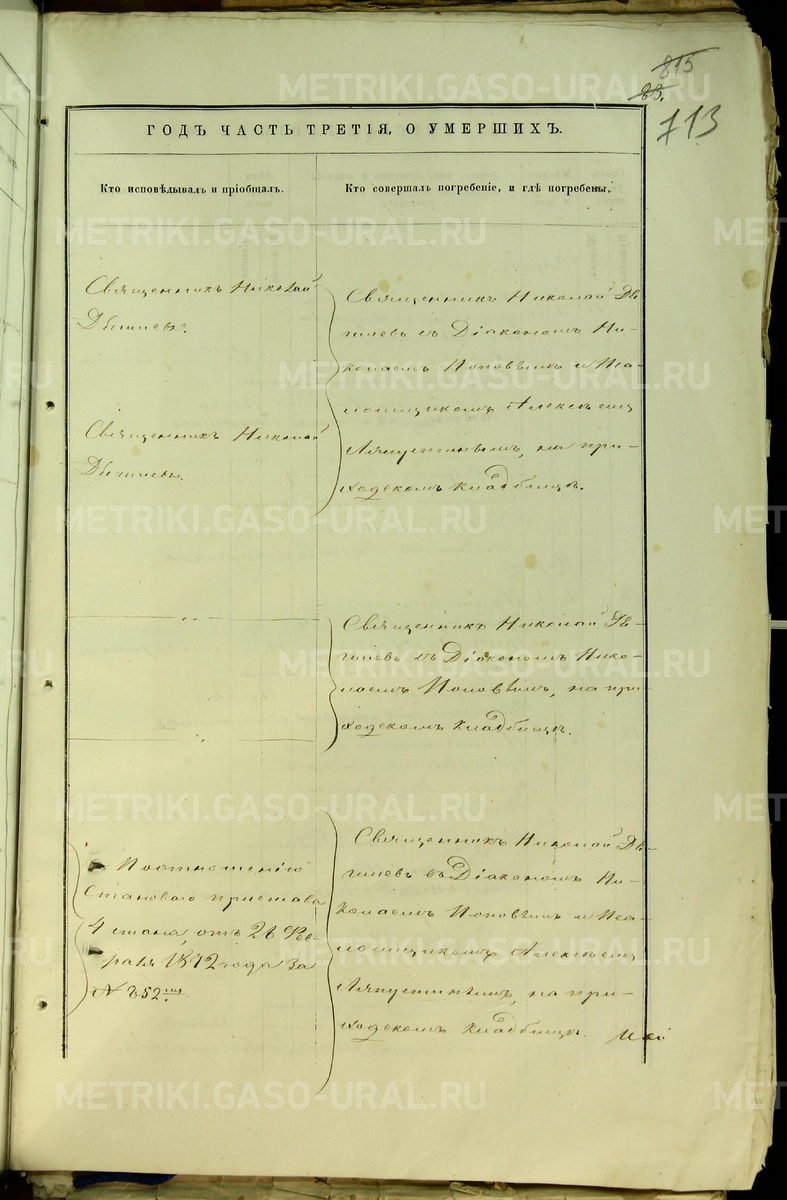 815
83.
713
ГОДЪ ЧАСТЬ ТРЕТІЯ, О УМЕРШИХЪ.
Кто исповѣдывалъ и пріобщалъ.
Кто совершалъ погребеніе, и гдѣ погребены.
Священникъ Николай
Священникъ Николай
Священникъ Николай
съ Діакономъ Ни-
колаемъ Поповымъ и Пса-
ломщикомъ Алексѣемъ
Ляпустинымъ, на при-
ходскомъ кладбищѣ.
Священникъ Николай
съ Діакономъ Нико-
лаемъ Поповымъ, на при-
ходскомъ кладбищѣ.
По отношенію
Становаго пристава
4 стана, отъ 26 Фев-
раля 1872 года за
№ 252
Священникъ Николай
съ Діакономъ Ни-
колаемъ Поповымъ и Пса-
ломщикомъ Алексѣемъ
Ляпустинымъ, на при-
ходскомъ кладбищѣ.
METRIKI.GASO-URAL.RU